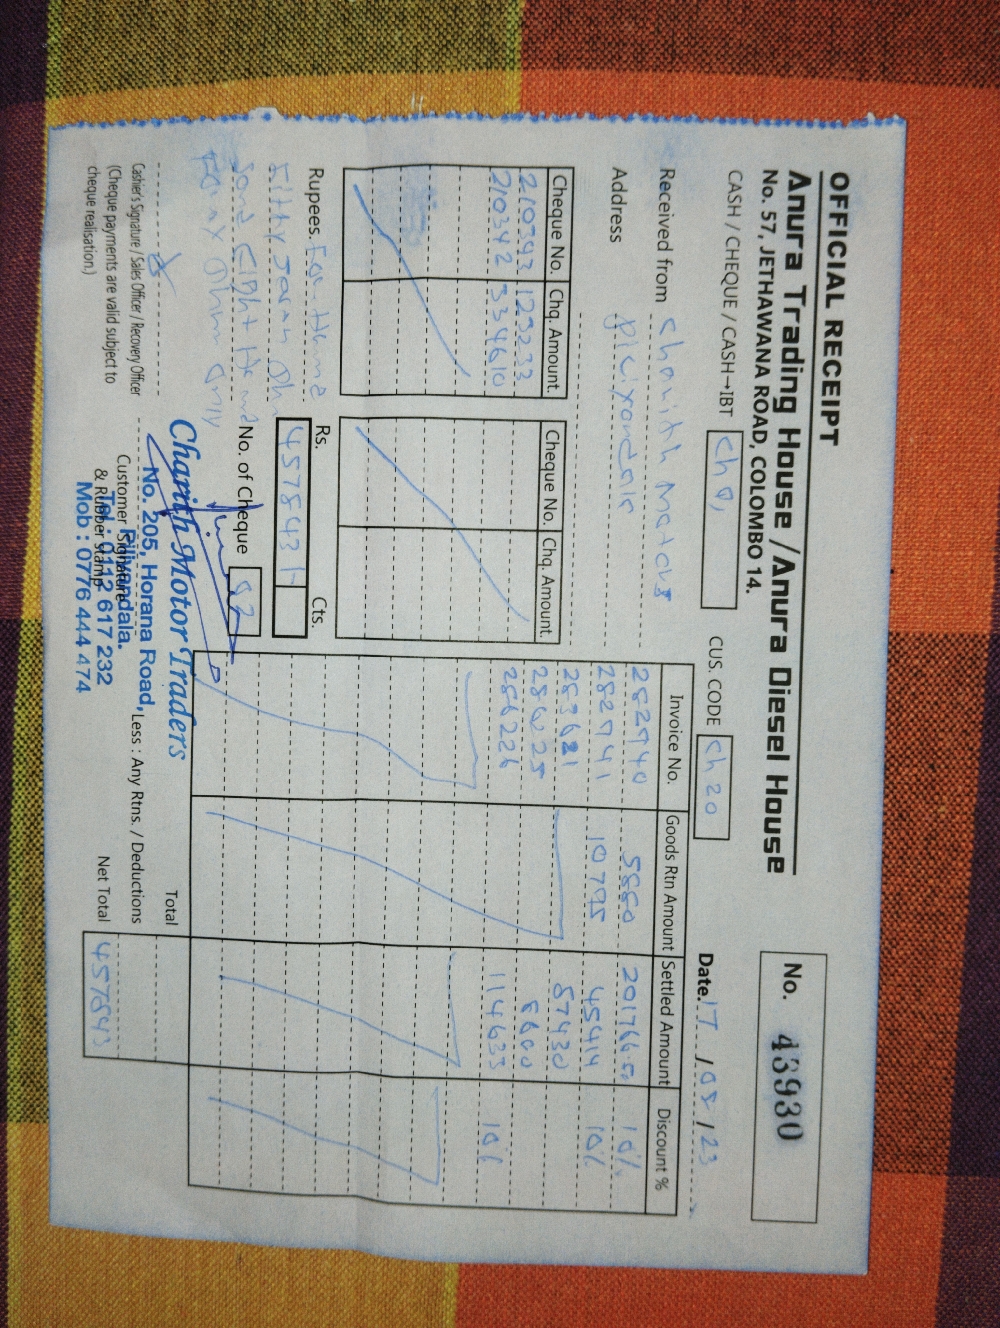 OFFICIAL RECEIPT
Anura Trading House / Anura Diesel House
No. 57, JETHAWANA ROAD, COLOMBO 14.
No. 43930
CASH / CHEQUE / CASH→IBT Chq,
CUS. CODE Ch 20
Date. 17 / 05 / 23
Received from
Address
Cheque No. Chq. Amount.
210393 123233
210342 334610
Cheque No. Chq. Amount.
Invoice No. Goods Rtn Amount Settled Amount Discount %
282940 5850 201766.50 10%
282941 10795 45414 10%
283621 87430
286225 8600
286226 114633 10%
Rupees.
only
Rs. Cts.
457843/-
No. of Cheque 02
Total
Less : Any Rtns. / Deductions
Net Total 457843
Cashier's Signature / Sales Officer / Recovery Officer
(Cheque payments are valid subject to
cheque realisation.)
Customer Signature
& Rubber Stamp
Charith Motor Traders
No. 205, Horana Road,
Piliyandala.
Tel : 0112 617 232
Mob : 0776 444 474